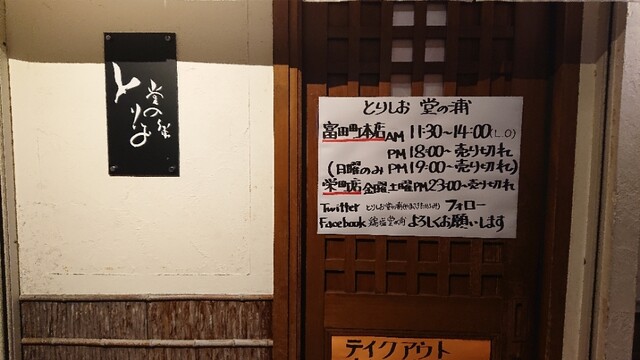 とりしお
堂の浦
とりしお 堂の浦
富田町本店AM 11:30~14:00(L.O)
PM 18:00~売り切れ
(日曜のみ PM 19:00~売り切れ)
栄町店 金曜、土曜PM 23:00~売り切れ
Twitter とりしお堂の浦 フォロー
Facebook 鶏塩堂の浦 よろしくお願いします
テイクアウト